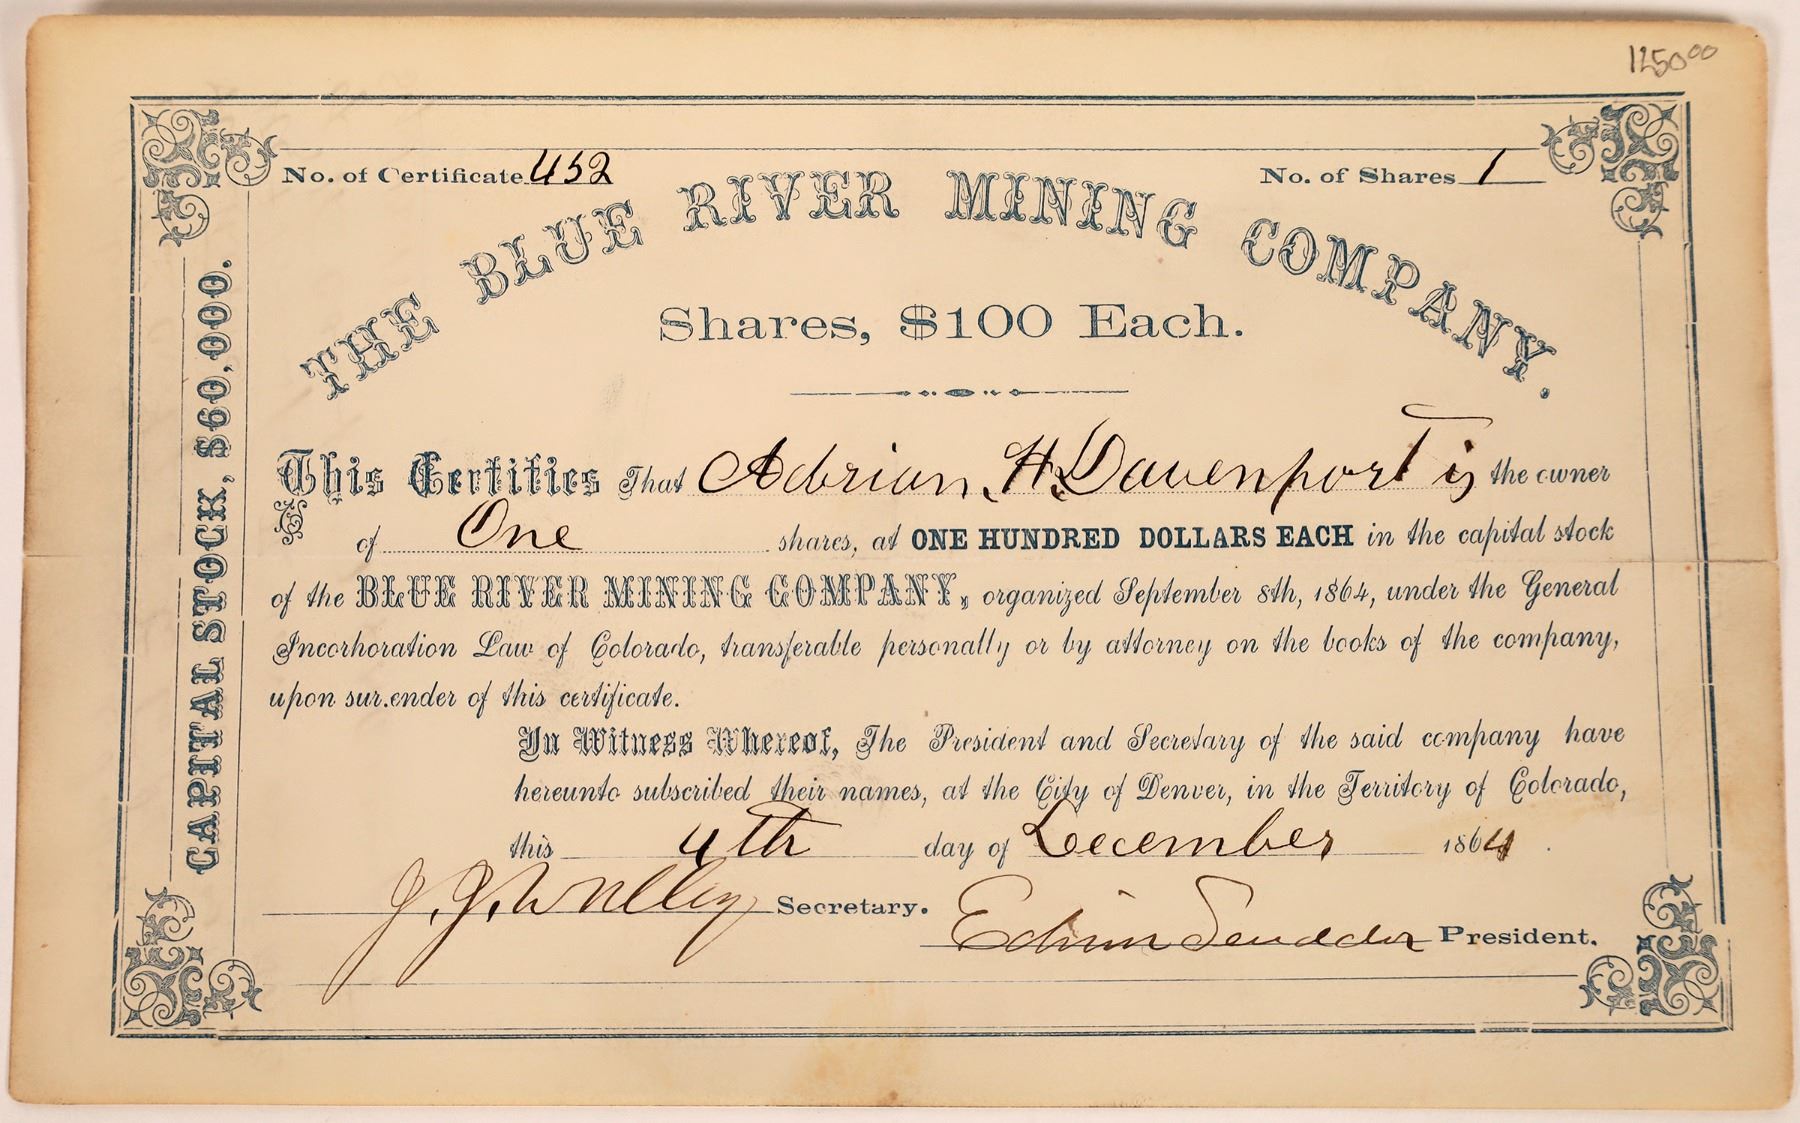 1250 00
No. of Certificate 452
No. of Shares 1
THE BLUE RIVER MINING COMPANY.
Shares, $100 Each.
CAPITAL STOCK, $60,000.
This Certifies That Adrian H. Davenport is the owner
of One shares, at ONE HUNDRED DOLLARS EACH in the capital stock
of the BLUE RIVER MINING COMPANY, organized September 8th, 1864, under the General
Incorhoration Law of Colorado, transferable personally or by attorney on the books of the company,
upon sur.ender of this certificate.
In Witness Whereof, The President and Secretary of the said company have
hereunto subscribed their names, at the City of Denver, in the Territory of Colorado,
this 4th day of December 1864.
J. J. Secretary.
Edwin Scudder President.